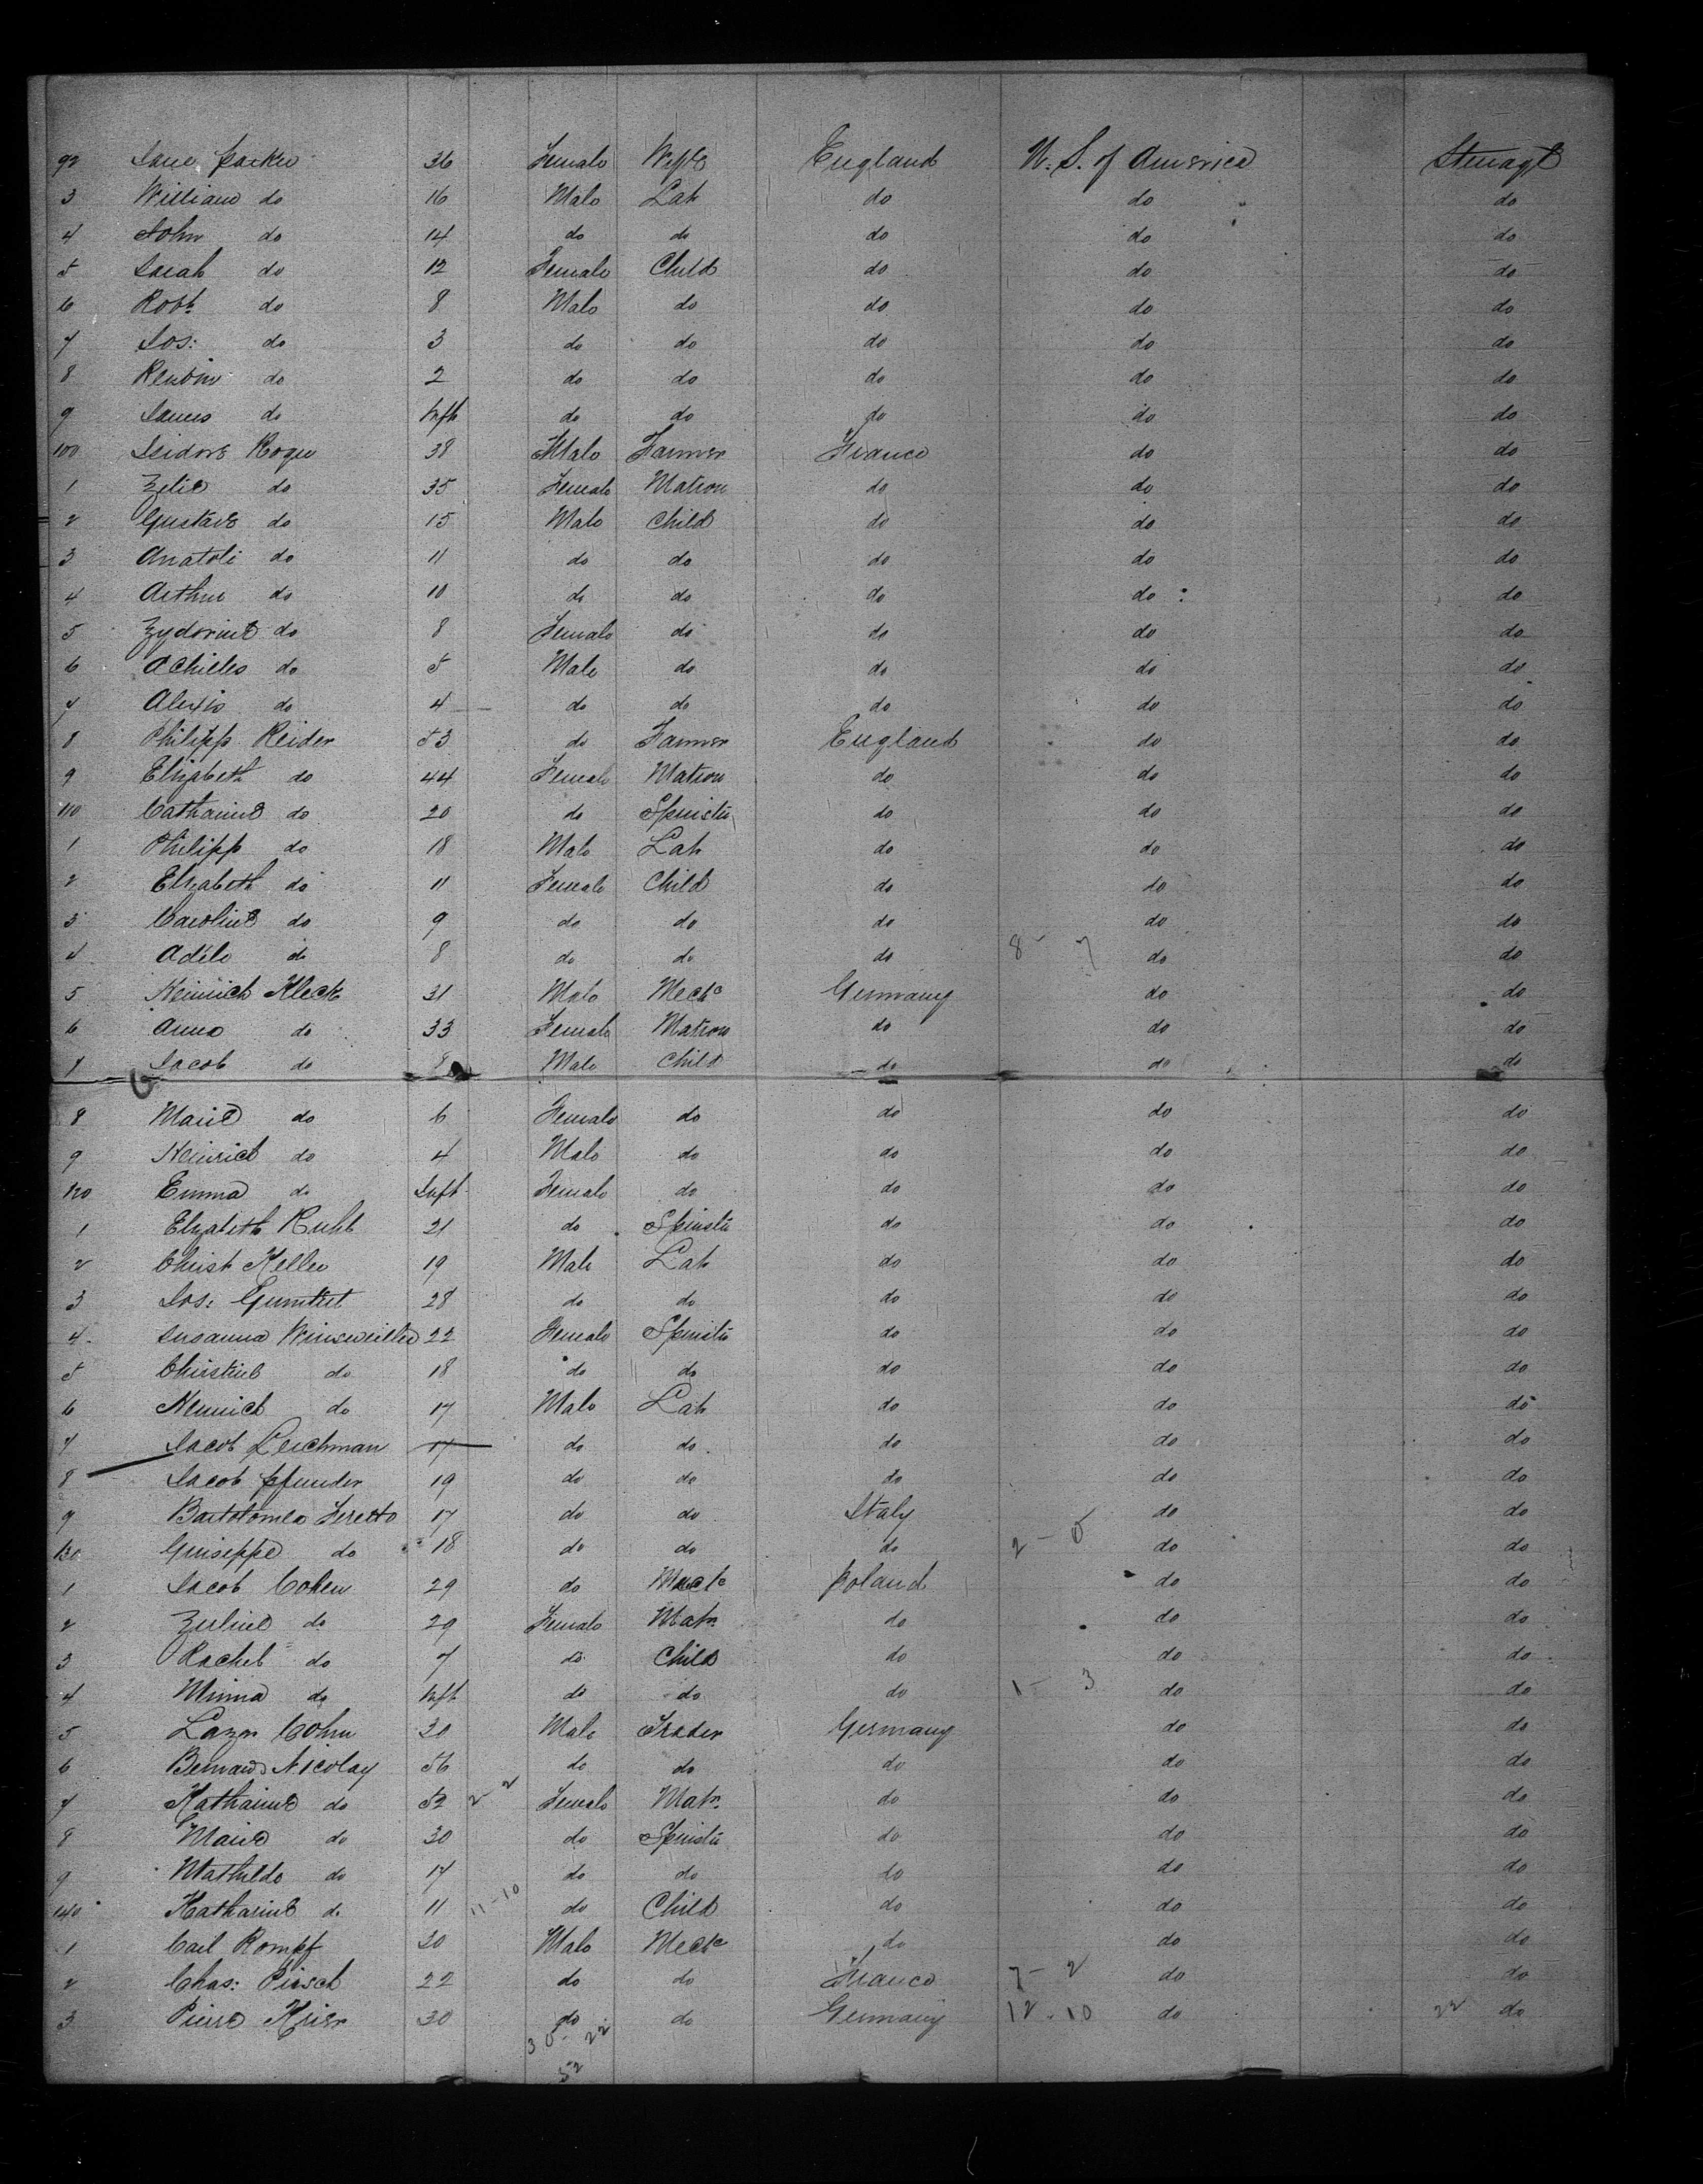 92 Jane Parker 36 Female Wife England U. S. of America Steerage
3 William do 16 Male Labr do do do
4 John do 14 do do do do do
5 Sarah do 12 Female Child do do do
6 Robt do 8 Male do do do do
7 Jos: do 3 do do do do do
8 Reubin do 2 do do do do do
9 James do Inft do do do do do
100 Isidore Roque 38 Male Farmer France do do
1 Zelie do 35 Female Matron do do do
2 Gustave do 15 Male Child do do do
3 Anatoli do 11 do do do do do
4 Arthur do 10 do do do do do
5 Zydorine do 8 Female do do do do
6 Achilles do 5 Male do do do do
7 Alexis do 4 do do do do do
8 Philipp Reider 53 do Farmer England do do
9 Elizabeth do 44 Female Matron do do do
110 Catharine do 20 do Spinstr do do do
1 Philipp do 18 Male Labr do do do
2 Elizabeth do 11 Female Child do do do
3 Caroline do 9 do do do do do
4 Adéle do 8 do do do 8 - 7 do do
5 Heinrich Kleck 31 Male Mechc Germany do do
6 Anna do 33 Female Matron do do do
7 Jacob do 8 Male Child do do do
8 Marie do 6 Female do do do do
9 Heinrich do 4 Male do do do do
120 Emma do Inft Female do do do do
1 Elizabeth Ruhl 21 do Spinstr do do do
2 Christ Keller 19 Male Labr do do do
3 Jos: 28 do do do do do
4 Susanna Winsweiller 22 Female Spinstr do do do
5 Christine do 18 do do do do do
6 Heinrich do 17 Male Labr do do do
7 Jacob Leichman 17 do do do do do
8 Jacob Pfunder 19 do do do do do
9 Bartolomeo Feretto 17 do do Italy do do
130 Guiseppe do 18 do do do 2 - 0 do do
1 Jacob Cohen 29 do Mechc Poland do do
2 Zuline do 29 Female Matn do do do
3 Rachel do 7 do Child do do do
4 Minna do Inft do do do 1 - 3 do do
5 Lazer Cohn 30 Male Trader Germany do do
6 Bernard Nicolay 56 do do do do do
7 Katharine do 52 2 - 2 Female Matn do do do
8 Marie do 30 do Spinstr do do do
9 Mathilde do 17 do do do do do
140 Katharine do 11 11-10 do Child do do do
1 Carl Rompf 30 Male Mechc do do do
2 Chas: Pirsch 22 do do France 7 - 2 do do
3 Pierre Krier 30 do do Germany 12 . 10 do 22 do
30 - 22
52